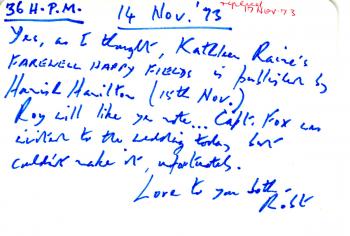 36 H.P.M. 14 Nov. '73 replied 17 Nov 73
Yes, as I thought, Kathleen Raine's
FAREWELL HAPPY FIELDS is published by
Hamish Hamilton (15th Nov.)
Roy will like yr note... Capt. Fox was
invited to the wedding today but
couldn't make it, unfortunately.
Love to you both